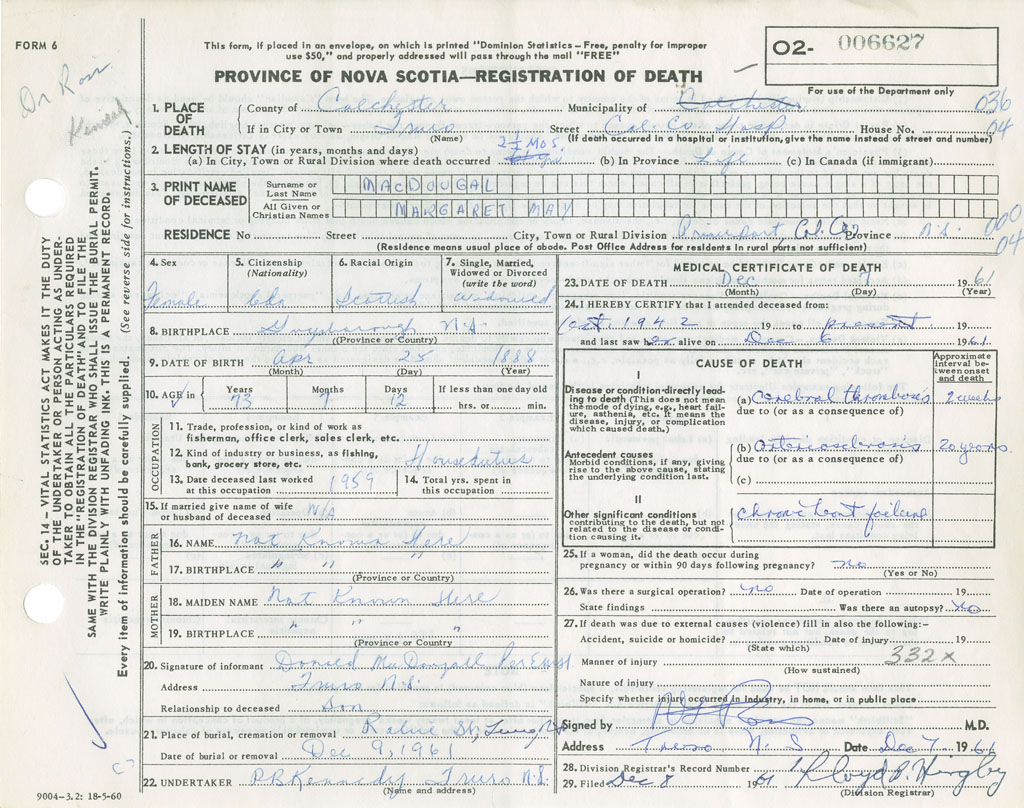 FORM 6
This form, if placed in an envelope, on which is printed "Dominion Statistics – Free, penalty for improper
use $50," and properly addressed will pass through the mail "FREE"
O2- 006627
For use of the Department only
PROVINCE OF NOVA SCOTIA—REGISTRATION OF DEATH
Dr Ross
Kennedy
SEC. 14 – VITAL STATISTICS ACT MAKES IT THE DUTY
OF THE UNDERTAKER OR PERSON ACTING AS UNDER-
TAKER TO OBTAIN ALL THE PARTICULARS REQUIRED
IN THE "REGISTRATION OF DEATH" AND TO FILE THE
SAME WITH THE DIVISION REGISTRAR WHO SHALL ISSUE THE BURIAL PERMIT.
WRITE PLAINLY WITH UNFADING INK. THIS IS A PERMANENT RECORD.
Every item of information should be carefully supplied. (See reverse side for instructions.)
1. PLACE OF DEATH
County of Colchester Municipality of Colchester 036
If in City or Town Truro Street Col. Co. Hosp House No. 04
(Name) (If death occurred in a hospital or institution, give the name instead of street and number)
2. LENGTH OF STAY (in years, months and days)
(a) In City, Town or Rural Division where death occurred 2½ Mos. (b) In Province Life (c) In Canada (if immigrant)
3. PRINT NAME OF DECEASED
Surname or Last Name MACDOUGAL
All Given or Christian Names MARGARET MAY
RESIDENCE No Street City, Town or Rural Division Col. Co. Province N.S. 000
04
(Residence means usual place of abode. Post Office Address for residents in rural parts not sufficient)
4. Sex Female
5. Citizenship (Nationality) Cdn
6. Racial Origin Scottish
7. Single, Married, Widowed or Divorced (write the word) Widowed
8. BIRTHPLACE Guysborough N.S.
(Province or Country)
9. DATE OF BIRTH Apr 25 1888
(Month) (Day) (Year)
10. AGE in Years 73 Months 7 Days 12 If less than one day old hrs. or min.
OCCUPATION
11. Trade, profession, or kind of work as
fisherman, office clerk, sales clerk, etc.
12. Kind of industry or business, as fishing,
bank, grocery store, etc. Houseduties
13. Date deceased last worked
at this occupation 1959
14. Total yrs. spent in
this occupation
15. If married give name of wife
or husband of deceased N/A
FATHER
16. NAME Not Known Here
17. BIRTHPLACE " "
(Province or Country)
MOTHER
18. MAIDEN NAME Not Known Here
19. BIRTHPLACE " " "
(Province or Country)
20. Signature of informant Donald MacDougall Per
Address Truro N.S.
Relationship to deceased Son
21. Place of burial, cremation or removal Robie St, Truro N.S.
Date of burial or removal Dec 9, 1961
22. UNDERTAKER P B Kennedy Truro N.S.
(Name and address)
9004-3.2: 18-5-60
MEDICAL CERTIFICATE OF DEATH
23. DATE OF DEATH Dec 7 1961
(Month) (Day) (Year)
24. I HEREBY CERTIFY that I attended deceased from:
Oct. 1942 19 to present 19
and last saw her alive on Dec 6 1961.
CAUSE OF DEATH
Approximate interval between onset and death
I
Disease or condition directly lead-
ing to death (This does not mean
the mode of dying, e.g., heart fail-
ure, asthenia, etc. It means the
disease, injury, or complication
which caused death.)
(a) Cerebral thrombosis 2 weeks
due to (or as a consequence of)
Antecedent causes
Morbid conditions, if any, giving
rise to the above cause, stating
the underlying condition last.
(b) Arteriosclerosis 20 years
due to (or as a consequence of)
(c)
II
Other significant conditions
contributing to the death, but not
related to the disease or condi-
tion causing it.
Chronic heart failure
25. If a woman, did the death occur during
pregnancy or within 90 days following pregnancy? no
(Yes or No)
26. Was there a surgical operation? no Date of operation 19
State findings Was there an autopsy? No
27. If death was due to external causes (violence) fill in also the following:–
Accident, suicide or homicide? Date of injury 19
(State which)
332 x
Manner of injury
(How sustained)
Nature of injury
Specify whether injury occurred in industry, in home, or in public place
Signed by Ross M.D.
Address Truro N.S Date Dec 7 1961
28. Division Registrar's Record Number
29. Filed Dec 8 1961 Lloyd
(Division Registrar)